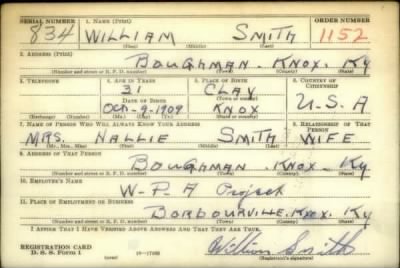 SERIAL NUMBER 1. NAME (Print) ORDER NUMBER
834 WILLIAM SMITH 1152
(First) (Middle) (Last)
2. ADDRESS (Print)
BOUGHMAN. KNOX. Ky
(Number and street or R. F. D. number) (Town) (County) (State)
3. TELEPHONE 4. AGE IN YEARS 5. PLACE OF BIRTH 6. COUNTRY OF CITIZENSHIP
31 CLAY
DATE OF BIRTH
OCT-9-1909 KNOX U.S.A
(Exchange) (Number) (Mo.) (Day) (Yr.) (State or country)
7. NAME OF PERSON WHO WILL ALWAYS KNOW YOUR ADDRESS 8. RELATIONSHIP OF THAT PERSON
MRS. NALLIE SMITH WIFE
(Mr., Mrs., Miss) (First) (Middle) (Last)
9. ADDRESS OF THAT PERSON
BOUGHMAN. KNOX. Ky
(Number and street or R. F. D. number) (Town) (County) (State)
10. EMPLOYER'S NAME
W-P.A Project
11. PLACE OF EMPLOYMENT OR BUSINESS
BORBOURVILLE. KNOX. Ky
(Number and street or R. F. D. number) (Town) (County) (State)
I AFFIRM THAT I HAVE VERIFIED ABOVE ANSWERS AND THAT THEY ARE TRUE.
REGISTRATION CARD
D. S. S. FORM 1 William Smith
(Registrant's signature)